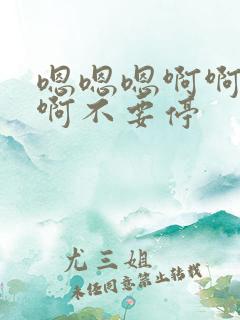 嗯嗯嗯啊啊
啊不要停
尤三姐
未经同意禁止转载